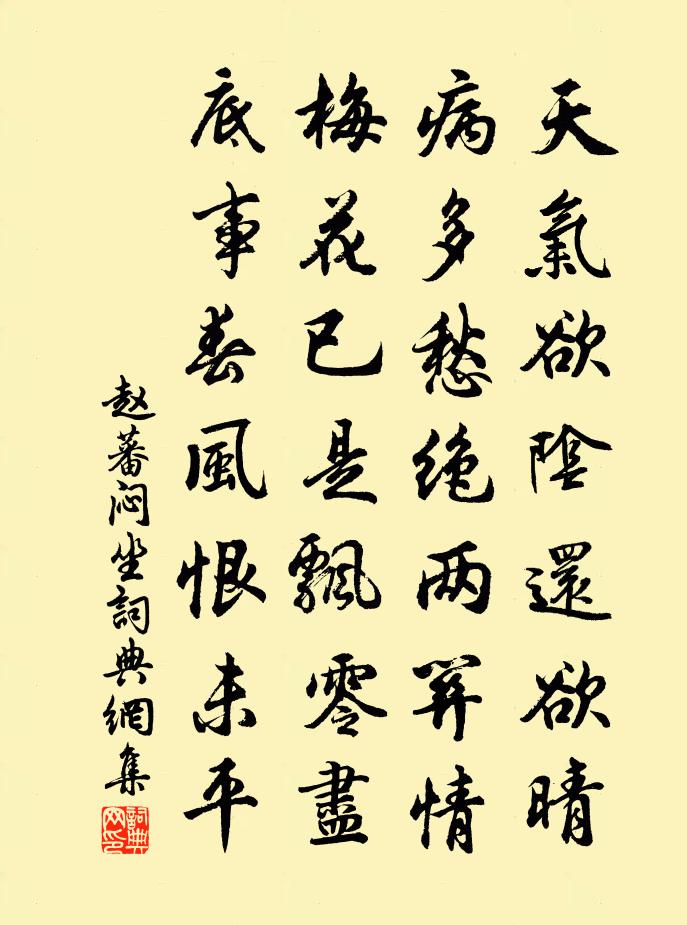 天氣欲陰還欲晴
病多愁絶两關情
梅花已是飄零盡
底事春風恨未平
赵蕃闷坐詞典網集
詞典网印